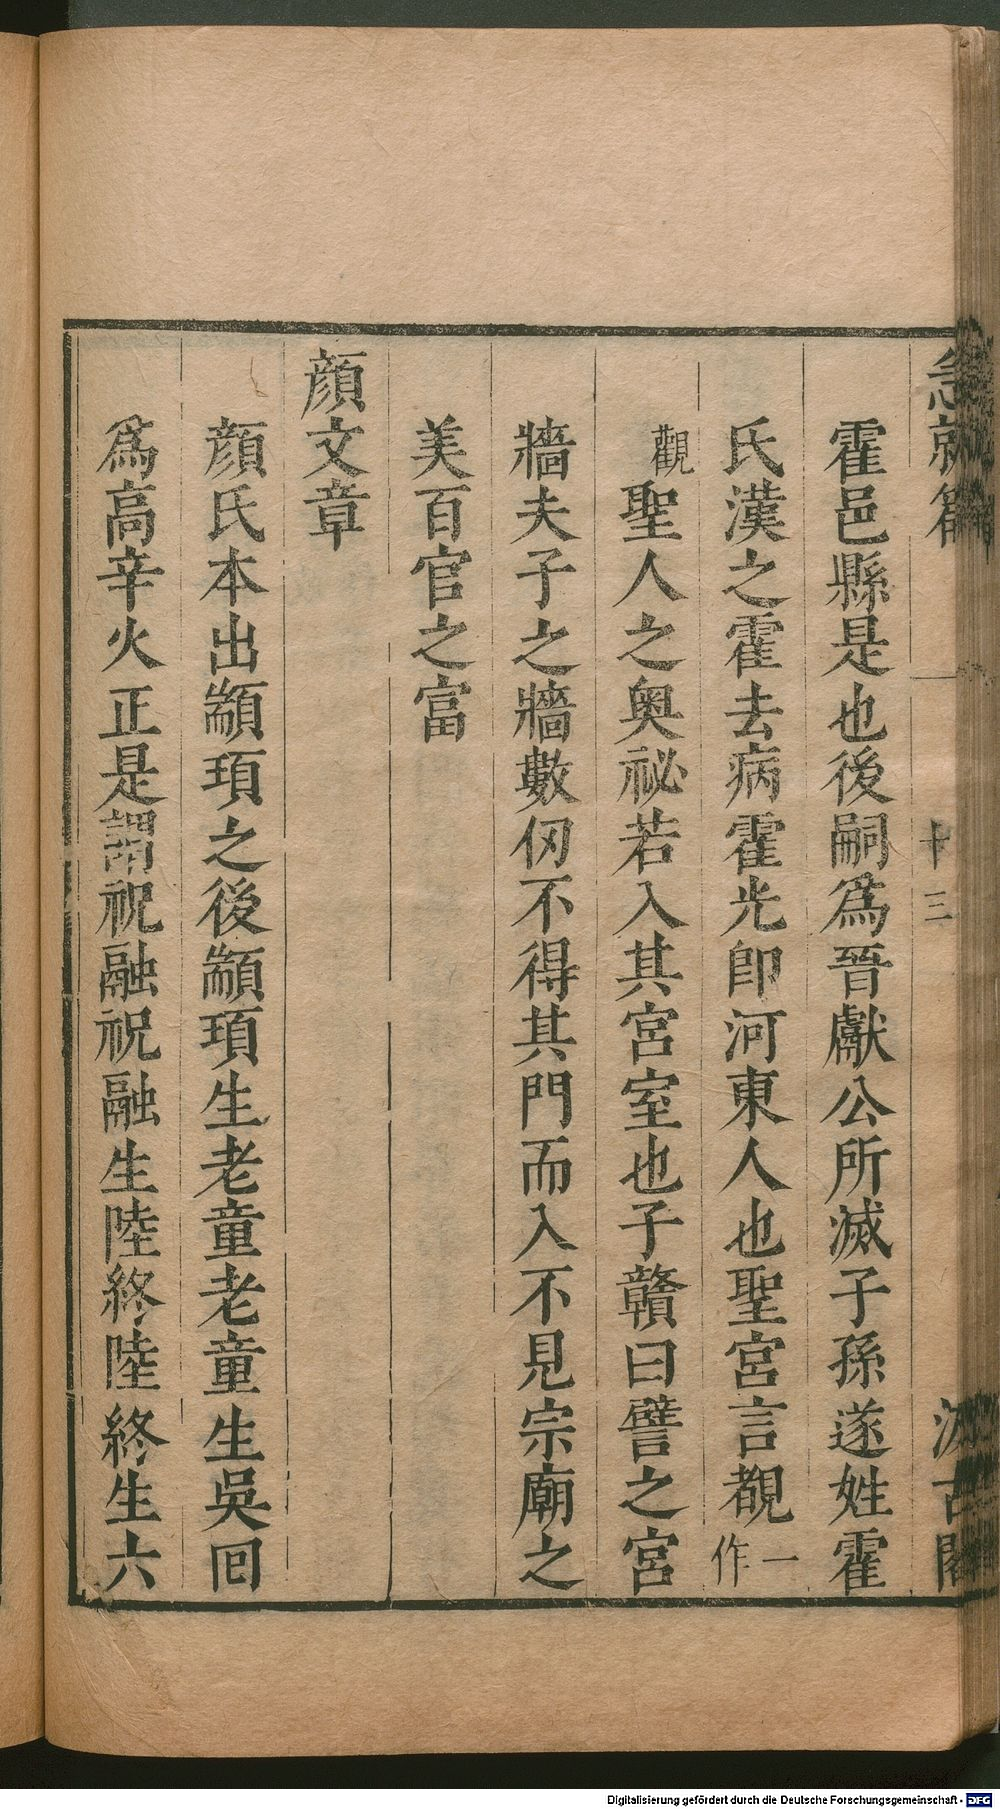 急就篇 十三 汲古閣
霍邑縣是也後嗣爲晉獻公所滅子孫遂姓霍
氏漢之霍去病霍光卽河東人也聖宮言覩一作
觀聖人之奧祕若入其宮室也子贛曰譬之宮
牆夫子之牆數仞不得其門而入不見宗廟之
美百官之富
顏文章
顏氏本出顓頊之後顓頊生老童老童生吳回
爲高辛火正是謂祝融祝融生陸終陸終生六
Digitalisierung gefördert durch die Deutsche Forschungsgemeinschaft - DFG